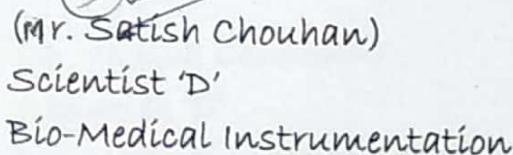 (Mr. Satish Chouhan)
Scientist 'D'
Bio-Medical Instrumentation